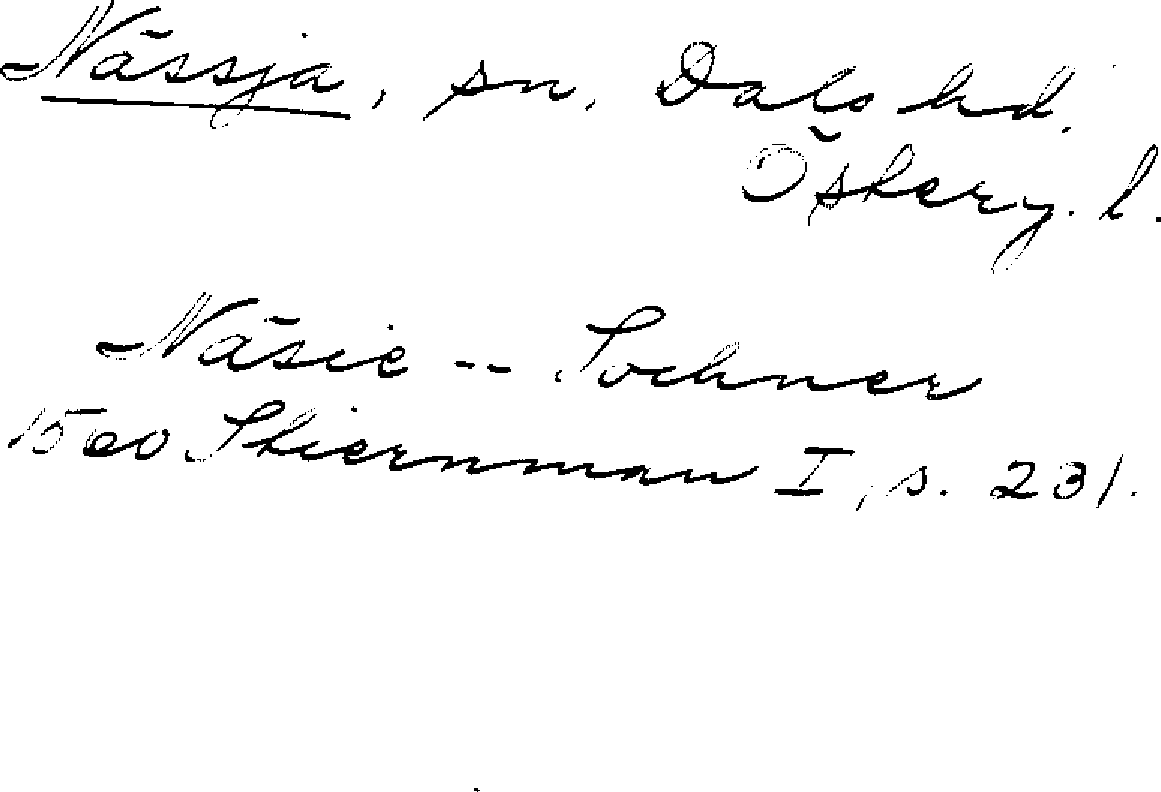 Nässja, sn, Dals hd.
Öskerg. l.
Näsie -- Sochner
1560 Stiernman I, s. 231.